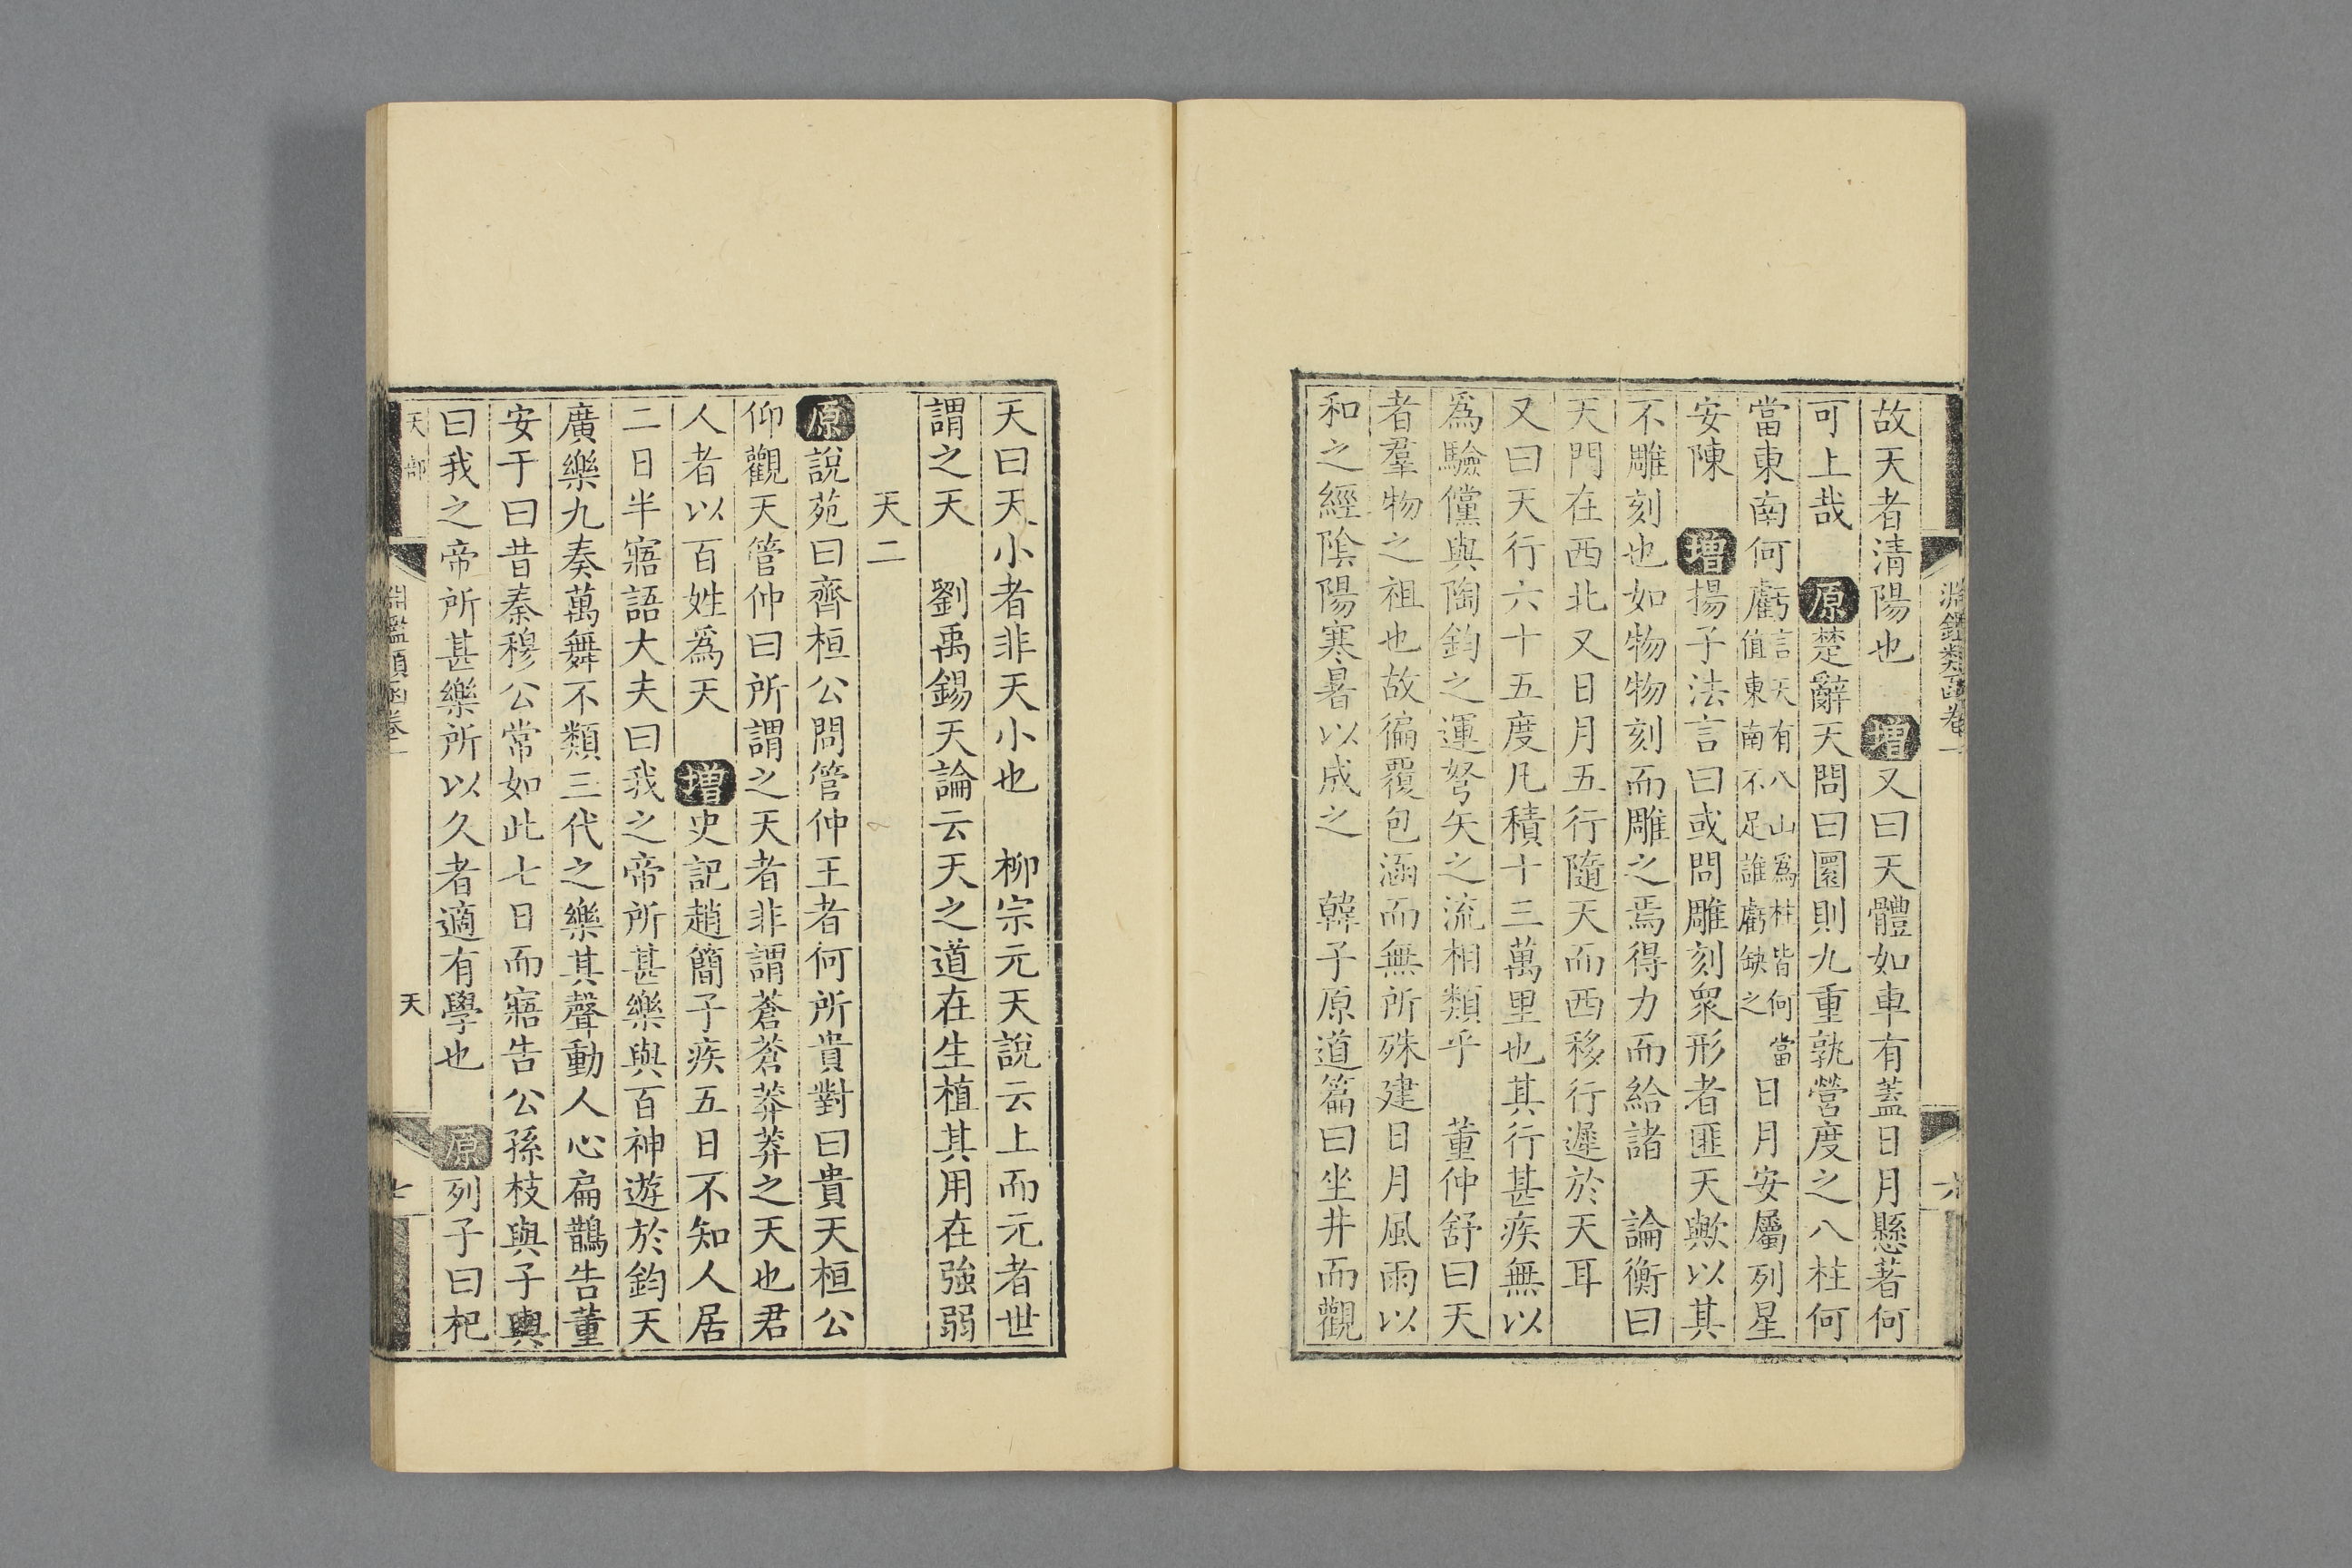 淵鑑類函卷一
六
故天者清陽也　增又曰天體如車有蓋日月懸著何
可上哉　原楚辭天問曰圜則九重孰營度之八柱何
當東南何虧言天有八山爲柱皆何當值東南不足誰虧缺之日月安屬列星
安陳　增揚子法言曰或問雕刻衆形者匪天歟以其
不雕刻也如物物刻而雕之焉得力而給諸　論衡曰
天門在西北又日月五行隨天而西移行遲於天耳
又曰天行六十五度凡積十三萬里也其行甚疾無以
爲驗儻與陶鈞之運弩矢之流相類乎　董仲舒曰天
者羣物之祖也故徧覆包涵而無所殊建日月風雨以
和之經陰陽寒暑以成之　韓子原道篇曰坐井而觀
天曰天小者非天小也　柳宗元天說云上而元者世
謂之天　劉禹錫天論云天之道在生植其用在強弱
天二
原說苑曰齊桓公問管仲王者何所貴對曰貴天桓公
仰觀天管仲曰所謂之天者非謂蒼蒼莽莽之天也君
人者以百姓爲天　增史記趙簡子疾五日不知人居
二日半寤語大夫曰我之帝所甚樂與百神遊於鈞天
廣樂九奏萬舞不類三代之樂其聲動人心扁鵲告董
安于曰昔秦穆公常如此七日而寤告公孫枝與子輿
曰我之帝所甚樂所以久者適有學也　原列子曰杞
天部
淵鑑類函卷一
天
七